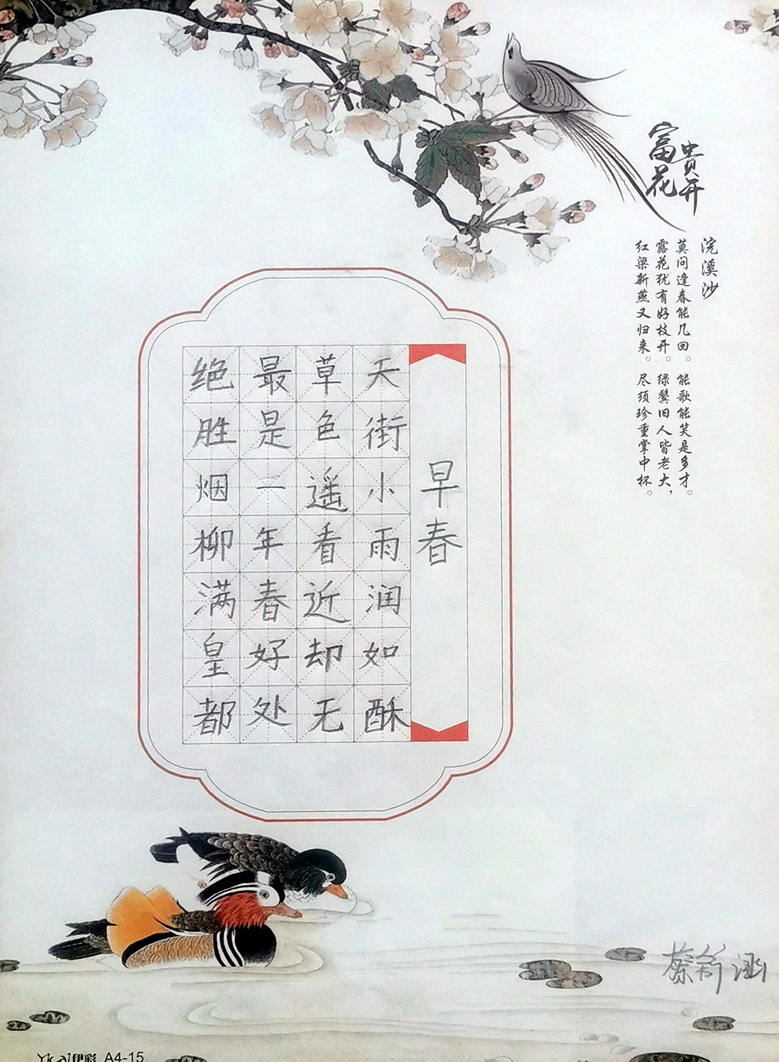 富贵花开
浣溪沙
莫问逢春能几回。能歌能笑是多才。
露花犹有好枝开。绿鬓旧人皆老大，
红梁新燕又归来。尽须珍重掌中杯。
早春
天街小雨润如酥
草色遥看近却无
最是一年春好处
绝胜烟柳满皇都
蔡新涵
A4-15